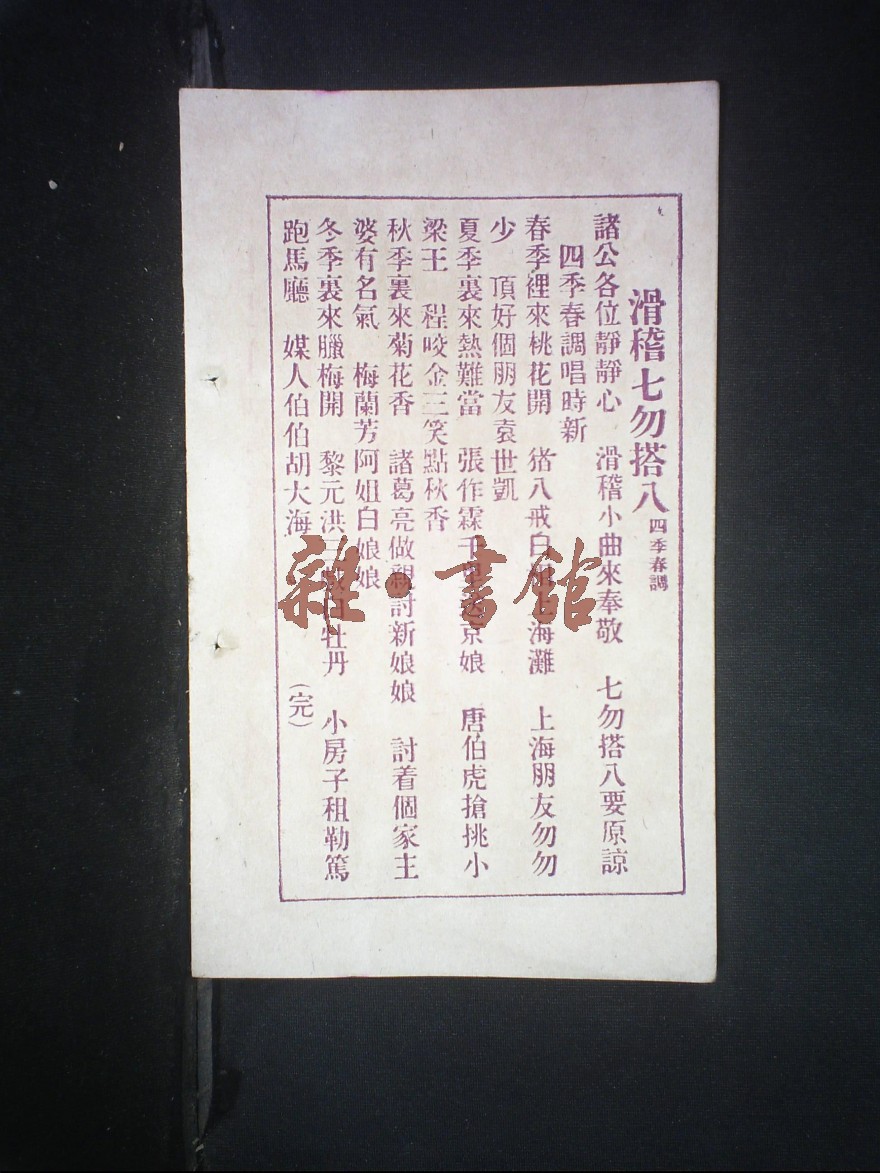 滑稽七勿搭八 四季春調
諸公各位靜靜心 滑稽小曲來奉敬 七勿搭八要原諒
四季春調唱時新
春季裡來桃花開 猪八戒白 海灘 上海朋友勿勿
少 頂好個朋友袁世凱
夏季裏來熱難當 張作霖千里 京娘 唐伯虎搶挑小
梁王 程咬金三笑點秋香
秋季裏來菊花香 諸葛亮做親討新娘娘 討着個家主
婆有名氣 梅蘭芳阿姐白娘娘
冬季裏來臘梅開 黎元洪三 白牡丹 小房子租勒篤
跑馬廳 媒人伯伯胡大海 (完)
雜·書館